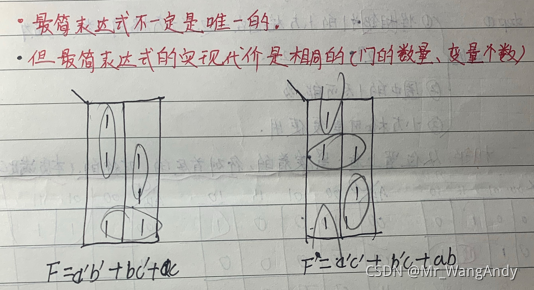 • 最简表达式不一定是唯一的.
• 但最简表达式的实现代价是相同的(门的数量、变量个数)
1
1 1
1 1 1
1 1
1 1 1 1
F=a'b'+bc'+ac
F=a'c'+b'c+ab
CSDN @Mr_WangAndy